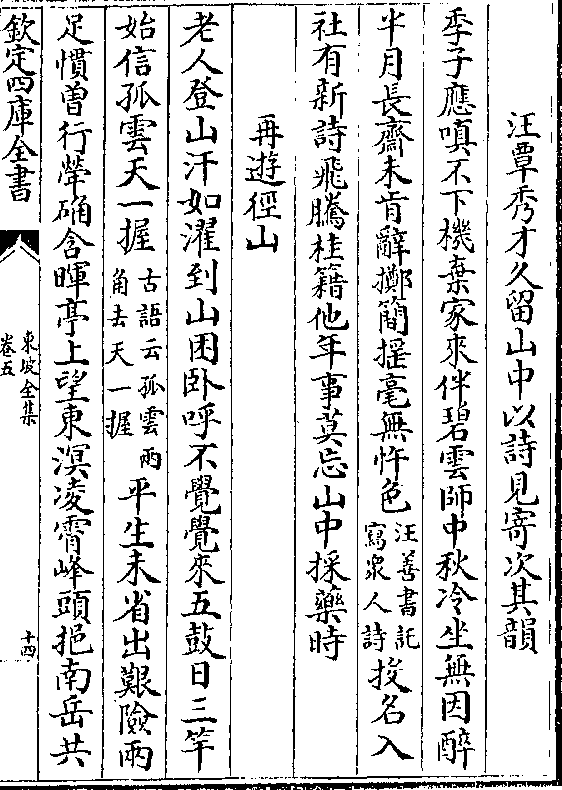 汪覃秀才久留山中以詩見寄次其韻
季子應嗔不下機棄家來伴碧雲師中秋冷坐無因醉
半月長齋未肯辭擲簡摇毫無忤色汪善書託寫衆人詩投名入
社有新詩飛騰桂籍他年事莫忘山中採藥時
再遊徑山
老人登山汗如濯到山困卧呼不覺覺來五鼓日三竿
始信孤雲天一握古語云孤雲兩角去天一握平生未省出艱險兩
足慣曽行犖确含暉亭上望東溟凌霄峰頭挹南岳共
欽定四庫全書
東坡全集
卷五
十四